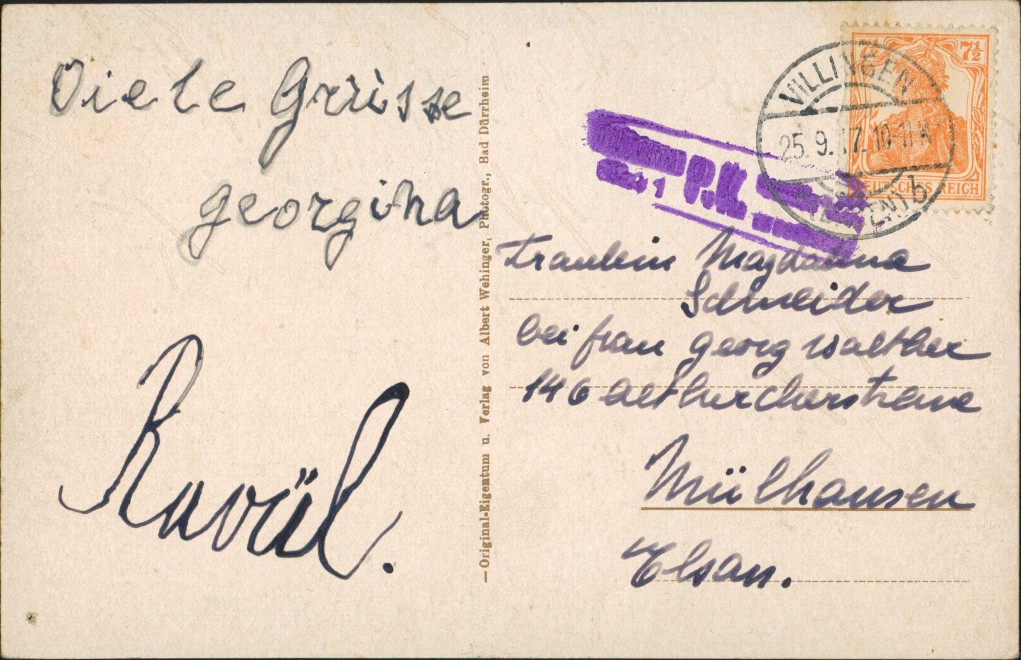 Viele Grüsse
georgina
Raoül.
Original-Eigentum u. Verlag von Albert Wehinger, Photogr., Bad Dürrheim
7½
DEUTSCHES REICH
VILLINGEN
25. 9. 17. 10-11
P.K.
Fraulein Magdanna
Schneider
bei frau georg Walther
146 altkircherstrasse
Mülhausen
Elsass.